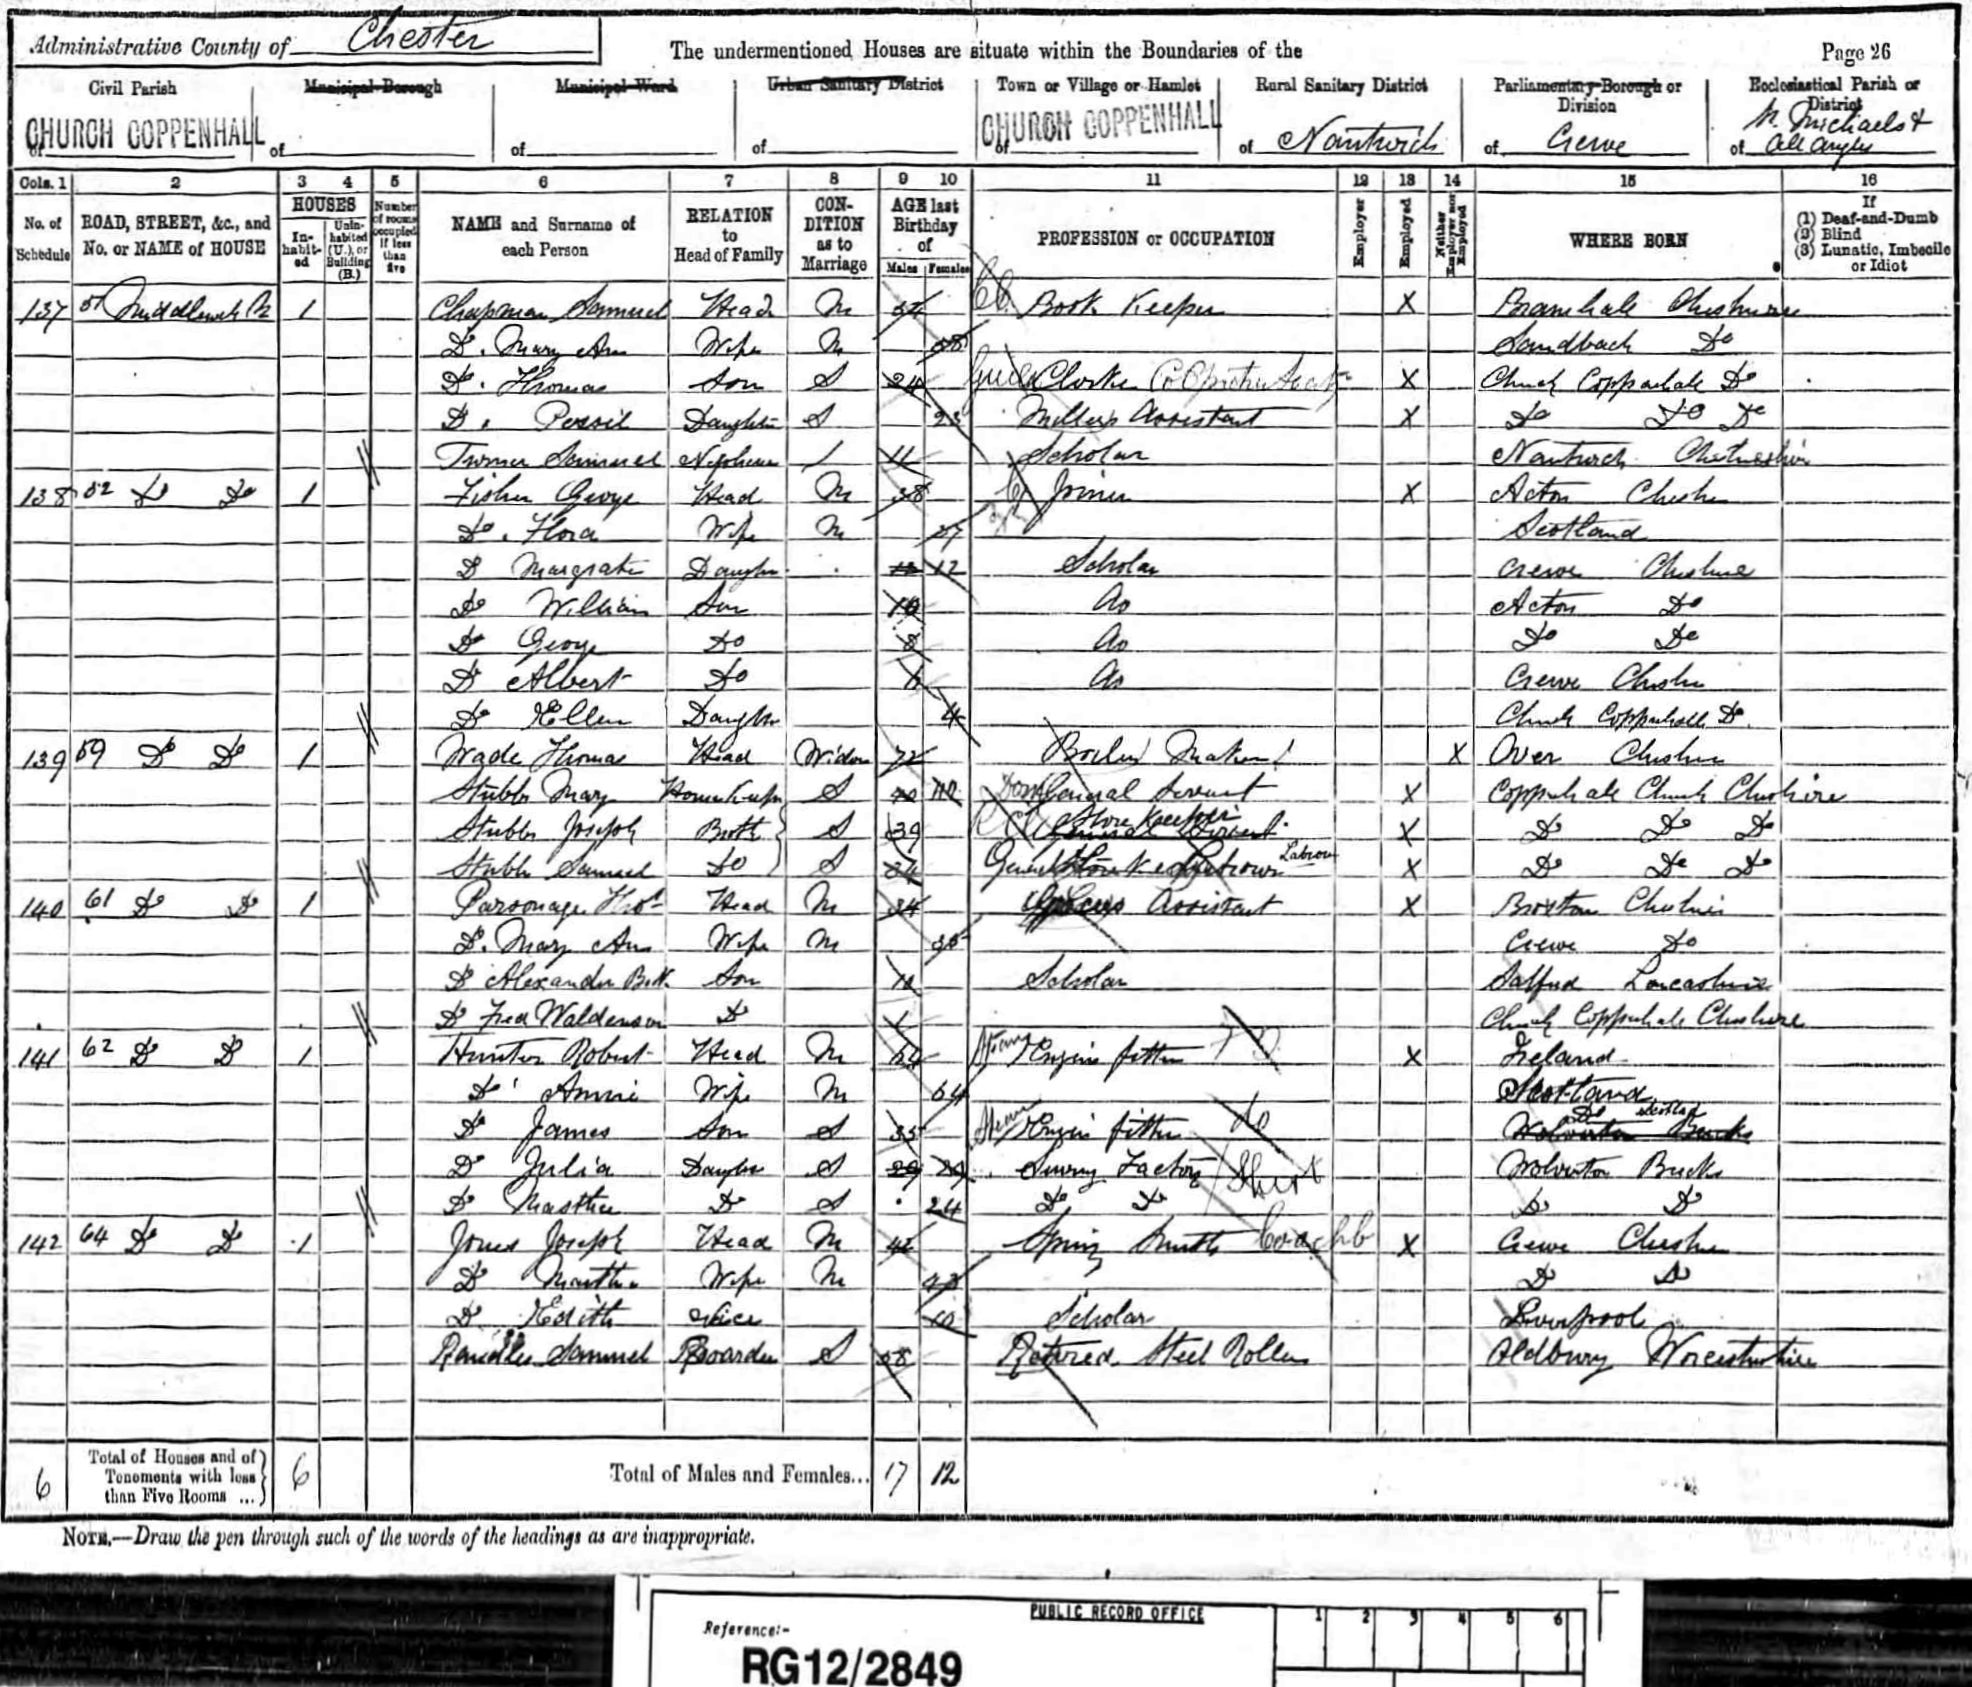 Administrative County of Chester
The undermentioned Houses are situate within the Boundaries of the
Page 26
Civil Parish
Municipal Borough
Municipal Ward
Urban Sanitary District
Town or Village or Hamlet
Rural Sanitary District
Parliamentary Borough or Division
Ecclesiastical Parish or District
of CHURCH COPPENHALL
of
of
of
of CHURCH COPPENHALL
of Nantwich
of Crewe
of St. Michaels & All Angels
Cols. 1 2 3 4 5 6 7 8 9 10 11 12 13 14 15 16
No. of Schedule
ROAD, STREET, &c., and No. or NAME of HOUSE
HOUSES
In-habit-ed
Unin-habited (U.), or Building (B.)
Number of rooms occupied if less than five
NAME and Surname of each Person
RELATION to Head of Family
CON-DITION as to Marriage
AGE last Birthday of
Males Females
PROFESSION or OCCUPATION
Employer
Employed
Neither Employer nor Employed
WHERE BORN
If
(1) Deaf-and-Dumb
(2) Blind
(3) Lunatic, Imbecile or Idiot
137 1 Chapman Samuel Head M Book Keeper X Bramhall Cheshire
Do. Mary Ann Wife M 58 Sandbach Do
Do. Thomas Son S 24 X Church Coppenhall Do
Do. Daughter S 23 Assistant X Do Do Do
Turner Samuel Nephew 11 Scholar Nantwich Cheshire
138 52 Do Do 1 Fisher George Head M 38 Joiner X Acton Cheshire
Do. Flora Wife M 37 Scotland
Do Daughter 12 Scholar Crewe Cheshire
Do William Son 10 Do Acton Do
Do George Do 8 Do Do Do
Do Albert Do Do Crewe Cheshire
Do Ellen Daughter 4 Church Coppenhall Do.
139 59 Do Do 1 Wade Thomas Head Widow 72 Boiler Maker X Over Cheshire
Stubbs Mary Housekeeper S General Servant X Coppenhall Church Cheshire
Stubbs Joseph Broth S 39 Store Keeper X Do Do Do
Stubbs Samuel Do S 34 Labour X Do Do Do
140 61 Do Do 1 Parsonage Thos Head M 34 Grocers Assistant X Cheshire
Do. Mary Ann Wife M Crewe Do
Do Alexander Son Scholar Salford Lancashire
Do Fred Do Church Coppenhall Cheshire
141 62 Do Do 1 Hunter Robert Head M 64 Steam Engine fitter X Ireland
Do Annie Wife M 64 Scotland
Do James Son S 35 Steam Engine fitter do Do Scotland
Do Julia Daughter S 29 Factory Shirt Wolverton Bucks
Do Do S 24 Do Do Do Do
142 64 Do Do 1 Jones Joseph Head M 42 Spring Smith X Crewe Cheshire
Do Martha Wife M 43 Do Do
Do Edith Niece 10 Scholar Liverpool
Samuel Boarder S 58 Retired Steel Roller Oldbury Worcestershire
6
Total of Houses and of Tenements with less than Five Rooms ...
6
Total of Males and Females... 17 12
NOTE.—Draw the pen through such of the words of the headings as are inappropriate.
PUBLIC RECORD OFFICE
1 2 3 4 5 6
Reference:-
RG12/2849